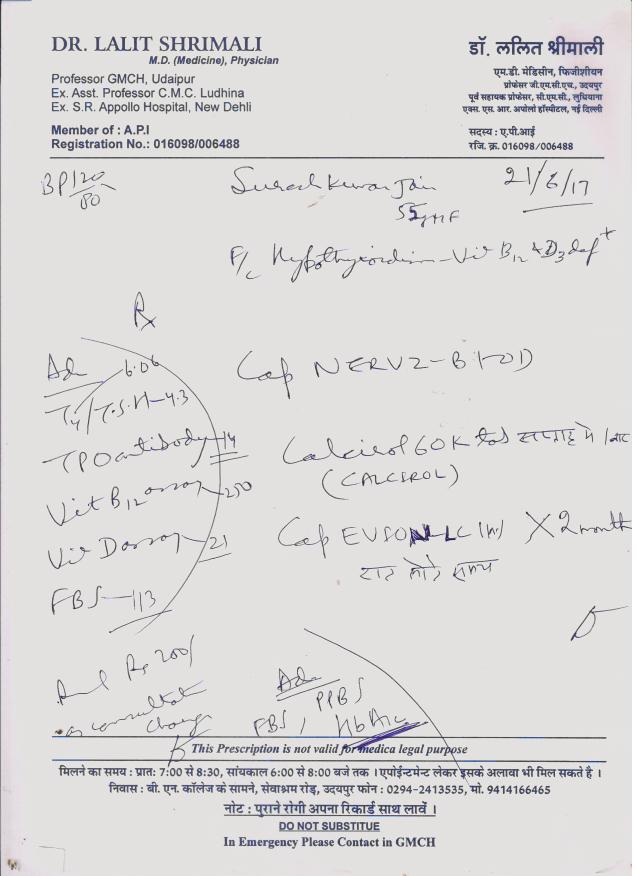 DR. LALIT SHRIMALI
M.D. (Medicine), Physician
Professor GMCH, Udaipur
Ex. Asst. Professor C.M.C. Ludhina
Ex. S.R. Appollo Hospital, New Dehli
Member of : A.P.I
Registration No.: 016098/006488
डॉ. ललित श्रीमाली
एम.डी. मेडिसीन, फिजीशीयन
प्रोफेसर जी.एम.सी.एच., उदयपुर
पूर्व सहायक प्रोफेसर, सी.एम.सी., लुधियाना
एक्स. एस. आर. अपोलो हॉस्पीटल, नई दिल्ली
सदस्य : ए.पी.आई
रजि. क्र. 016098/006488
BP 120/80
Suresh Kumar Jain
21/6/17
55
F/c Hypothyroidism - Vit B12 & D3 def+
Rx
Adv 6.06
T4/T.S.H - 4.3
TPO antibody - 14
Vit B12 assay - 250
Vit D assay - 21
FBS - 113
Cap NERVZ-B 1-OD
Calcirol 60K सप्ताह में 1 बार
(CALCIROL)
Cap X 2 month
रात सोते समय
Rs 200/
as consultation
charge
Adv
PPBS
FBS, HbA1c
This Prescription is not valid for medica legal purpose
मिलने का समय : प्रात: 7:00 से 8:30, सांयकाल 6:00 से 8:00 बजे तक । एपोईन्टमेन्ट लेकर इसके अलावा भी मिल सकते है ।
निवास : बी. एन. कॉलेज के सामने, सेवाश्रम रोड़, उदयपुर फोन : 0294-2413535, मो. 9414166465
नोट : पुराने रोगी अपना रिकार्ड साथ लावें ।
DO NOT SUBSTITUE
In Emergency Please Contact in GMCH